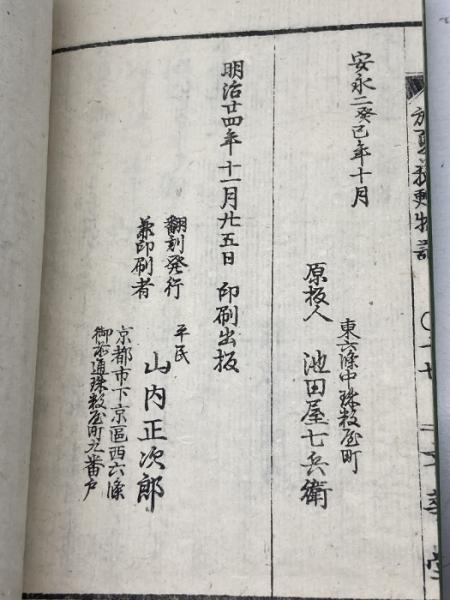 安永二癸巳年十月
東六條中珠数屋町
原板人 池田屋七兵衛
明治廿四年十一月廿五日 印刷出板
翻刻発行
兼印刷者
平民 山内正次郎
京都市下京區西六條
御前通珠数屋町九番戸